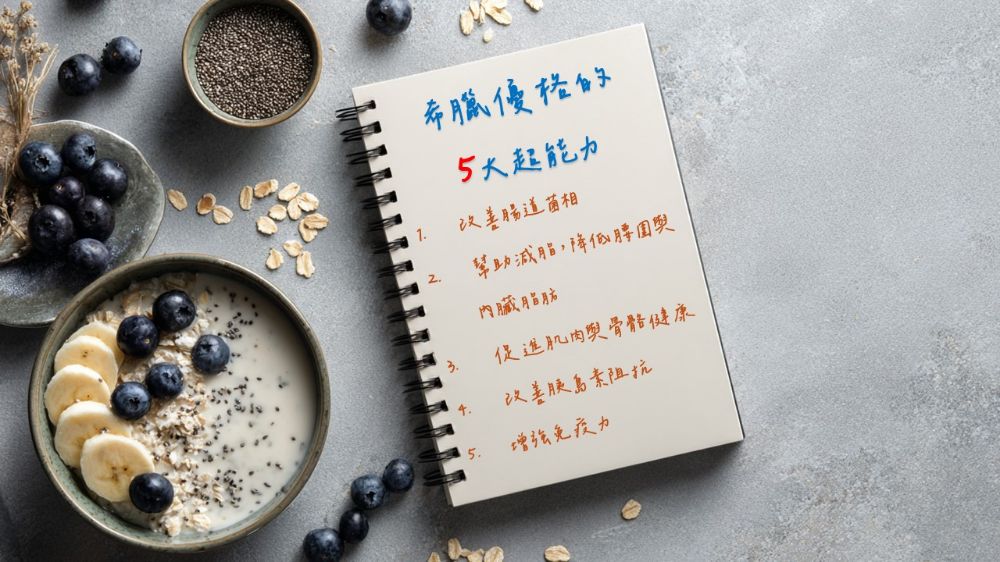 希臘優格的
5大超能力
1. 改善腸道菌相
2. 幫助減脂，降低腰圍與
內臟脂肪
3. 促進肌肉與骨骼健康
4. 改善胰島素阻抗
5. 增強免疫力